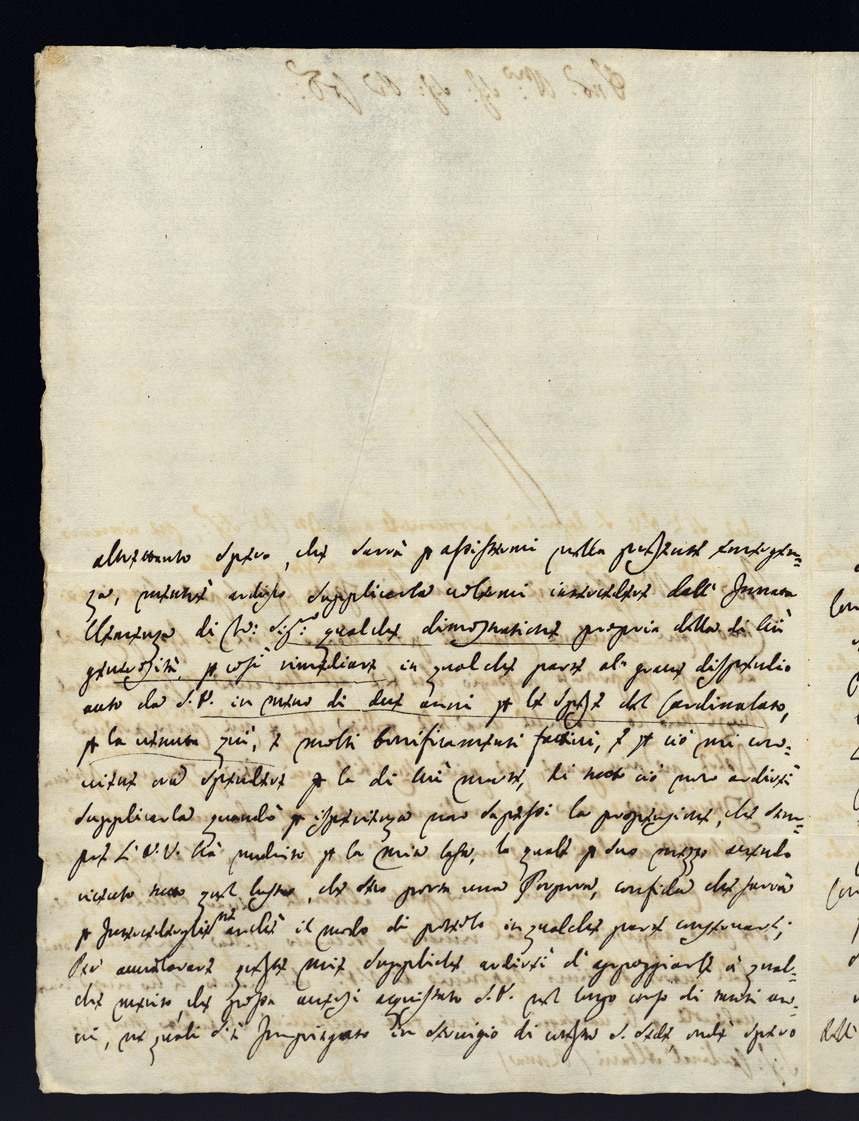 altrettanto spero, che sarà p assistermi nella presente emergen=
za, mentre ardisco supplicarla volermi intercedere dall' Innata
Clemenza di qualche dimostratione propria della di lui
generosità, p così rimpiazzare in qualche parte al grave dispendio
auto da S.V. in meno di due anni p le spese del Cardinalato,
p la venuta quì, e molti bonificamenti fattivi, e p ciò mi con=
viene ora p la di lui morte, nè tutto ciò non ardirei
supplicarla quando p isperienza non sapessi la propensione, che sem=
pre L' V. V. hà nudrito p la mia Casa, la quale p suo mezzo avendo
ricevuto tutto quel lustro, che può porre una Porpora, confida che sarà
p Intercedergli anche il modo di poterlo in qualche parte conservare;
Per avvalorare queste mie suppliche ardirei d' appoggiarle à qual=
che merito, che possa aversi acquistato S.V. nel lungo corso di molti an=
ni, ne quali s'è Impiegato in servigio di cotesta S. Sede, onde spero